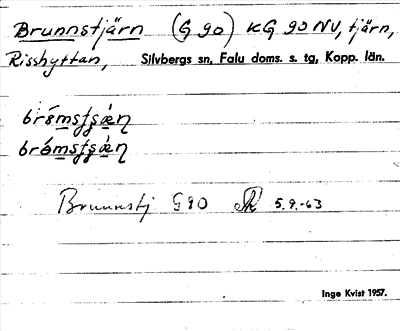 Brunnstjärn (G 90) KG 90 NV, tjärn,
Risshyttan, Silvbergs sn, Falu doms. s. tg, Kopp. län.
Brunnstj G 90 5.9.-63
Inge Kvist 1957.